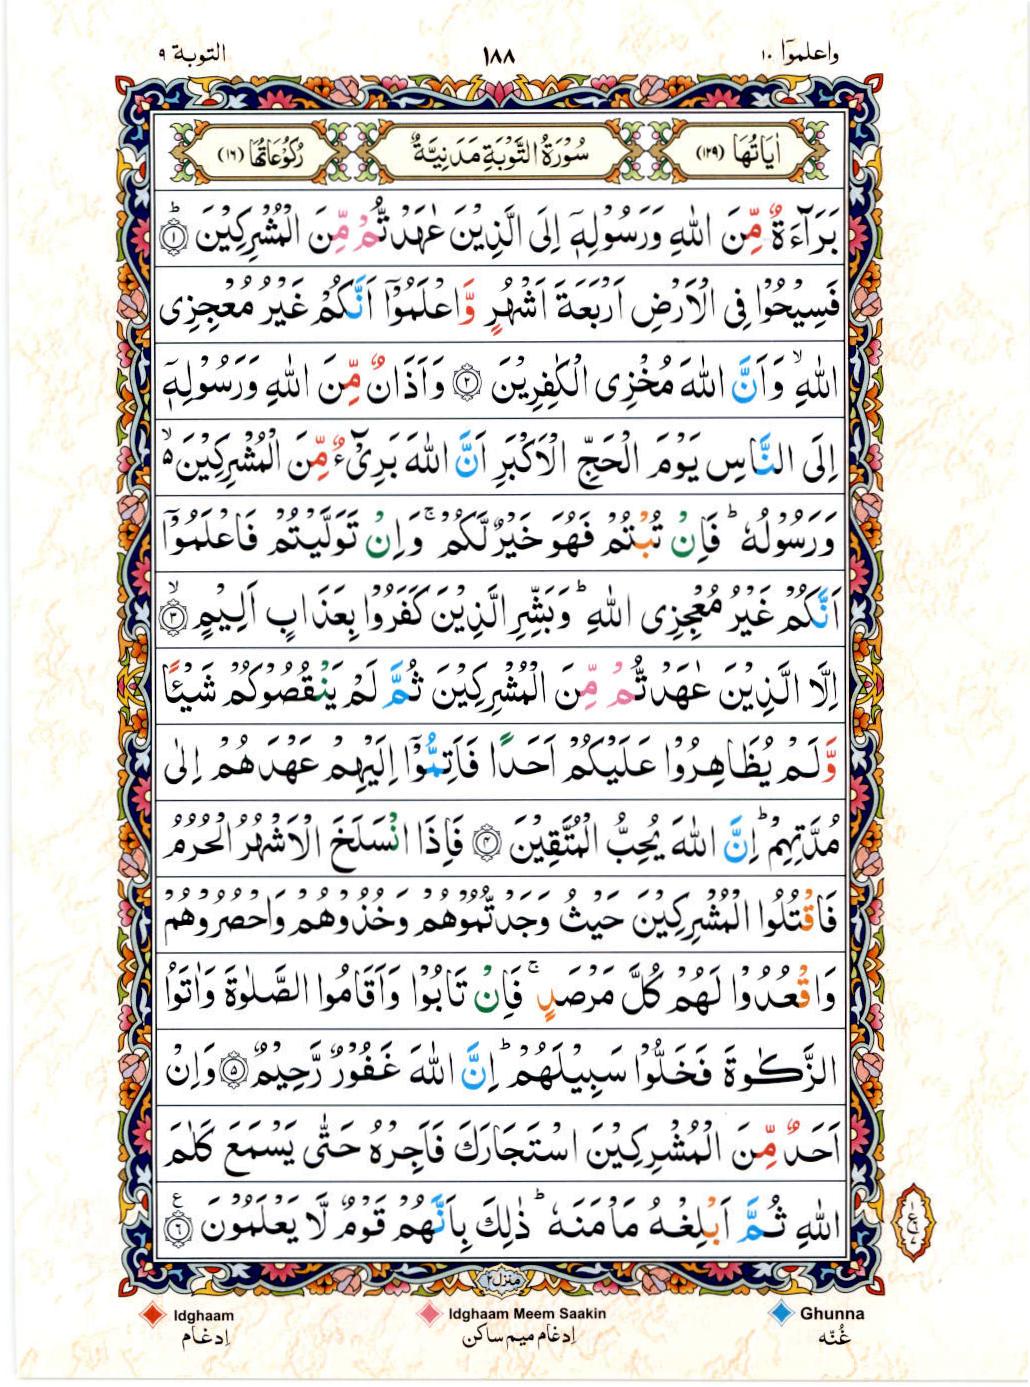 واعلموٓا ١٠
١٨٨
التوبة ٩
اٰيَاتُهَا (١٢٩)
سُوْرَةُ التَّوْبَةِ مَدَنِيَّةٌ
رُكُوْعَاتُهَا (١٦)
بَرَآءَةٌ مِّنَ اللّٰهِ وَرَسُوْلِهٖٓ اِلَى الَّذِيْنَ عٰهَدْتُّمْ مِّنَ الْمُشْرِكِيْنَ ؕ ۝١
فَسِيْحُوْا فِى الْاَرْضِ اَرْبَعَةَ اَشْهُرٍ وَّاعْلَمُوْٓا اَنَّكُمْ غَيْرُ مُعْجِزِى
اللّٰهِ ۙ وَاَنَّ اللّٰهَ مُخْزِى الْكٰفِرِيْنَ ۝٢ وَاَذَانٌ مِّنَ اللّٰهِ وَرَسُوْلِهٖٓ
اِلَى النَّاسِ يَوْمَ الْحَجِّ الْاَكْبَرِ اَنَّ اللّٰهَ بَرِىْٓءٌ مِّنَ الْمُشْرِكِيْنَ ۙ۬
وَرَسُوْلُهٗ ؕ فَاِنْ تُبْتُمْ فَهُوَ خَيْرٌ لَّكُمْ ۚ وَاِنْ تَوَلَّيْتُمْ فَاعْلَمُوْٓا
اَنَّكُمْ غَيْرُ مُعْجِزِى اللّٰهِ ؕ وَبَشِّرِ الَّذِيْنَ كَفَرُوْا بِعَذَابٍ اَلِيْمٍ ۙ ۝٣
اِلَّا الَّذِيْنَ عٰهَدْتُّمْ مِّنَ الْمُشْرِكِيْنَ ثُمَّ لَمْ يَنْقُصُوْكُمْ شَيْـًٔا
وَّلَمْ يُظَاهِرُوْا عَلَيْكُمْ اَحَدًا فَاَتِمُّوْٓا اِلَيْهِمْ عَهْدَهُمْ اِلٰى
مُدَّتِهِمْ ؕ اِنَّ اللّٰهَ يُحِبُّ الْمُتَّقِيْنَ ۝٤ فَاِذَا انْسَلَخَ الْاَشْهُرُ الْحُرُمُ
فَاقْتُلُوا الْمُشْرِكِيْنَ حَيْثُ وَجَدْتُّمُوْهُمْ وَخُذُوْهُمْ وَاحْصُرُوْهُمْ
وَاقْعُدُوْا لَهُمْ كُلَّ مَرْصَدٍ ۚ فَاِنْ تَابُوْا وَاَقَامُوا الصَّلٰوةَ وَاٰتَوُا
الزَّكٰوةَ فَخَلُّوْا سَبِيْلَهُمْ ؕ اِنَّ اللّٰهَ غَفُوْرٌ رَّحِيْمٌ ۝٥ وَاِنْ
اَحَدٌ مِّنَ الْمُشْرِكِيْنَ اسْتَجَارَكَ فَاَجِرْهُ حَتّٰى يَسْمَعَ كَلٰمَ
اللّٰهِ ثُمَّ اَبْلِغْهُ مَاْمَنَهٗ ؕ ذٰلِكَ بِاَنَّهُمْ قَوْمٌ لَّا يَعْلَمُوْنَ ع ۝٦
منزل ٢
Idghaam Idghaam Meem Saakin Ghunna
اِدغام اِدغام میم ساکن غُنّه